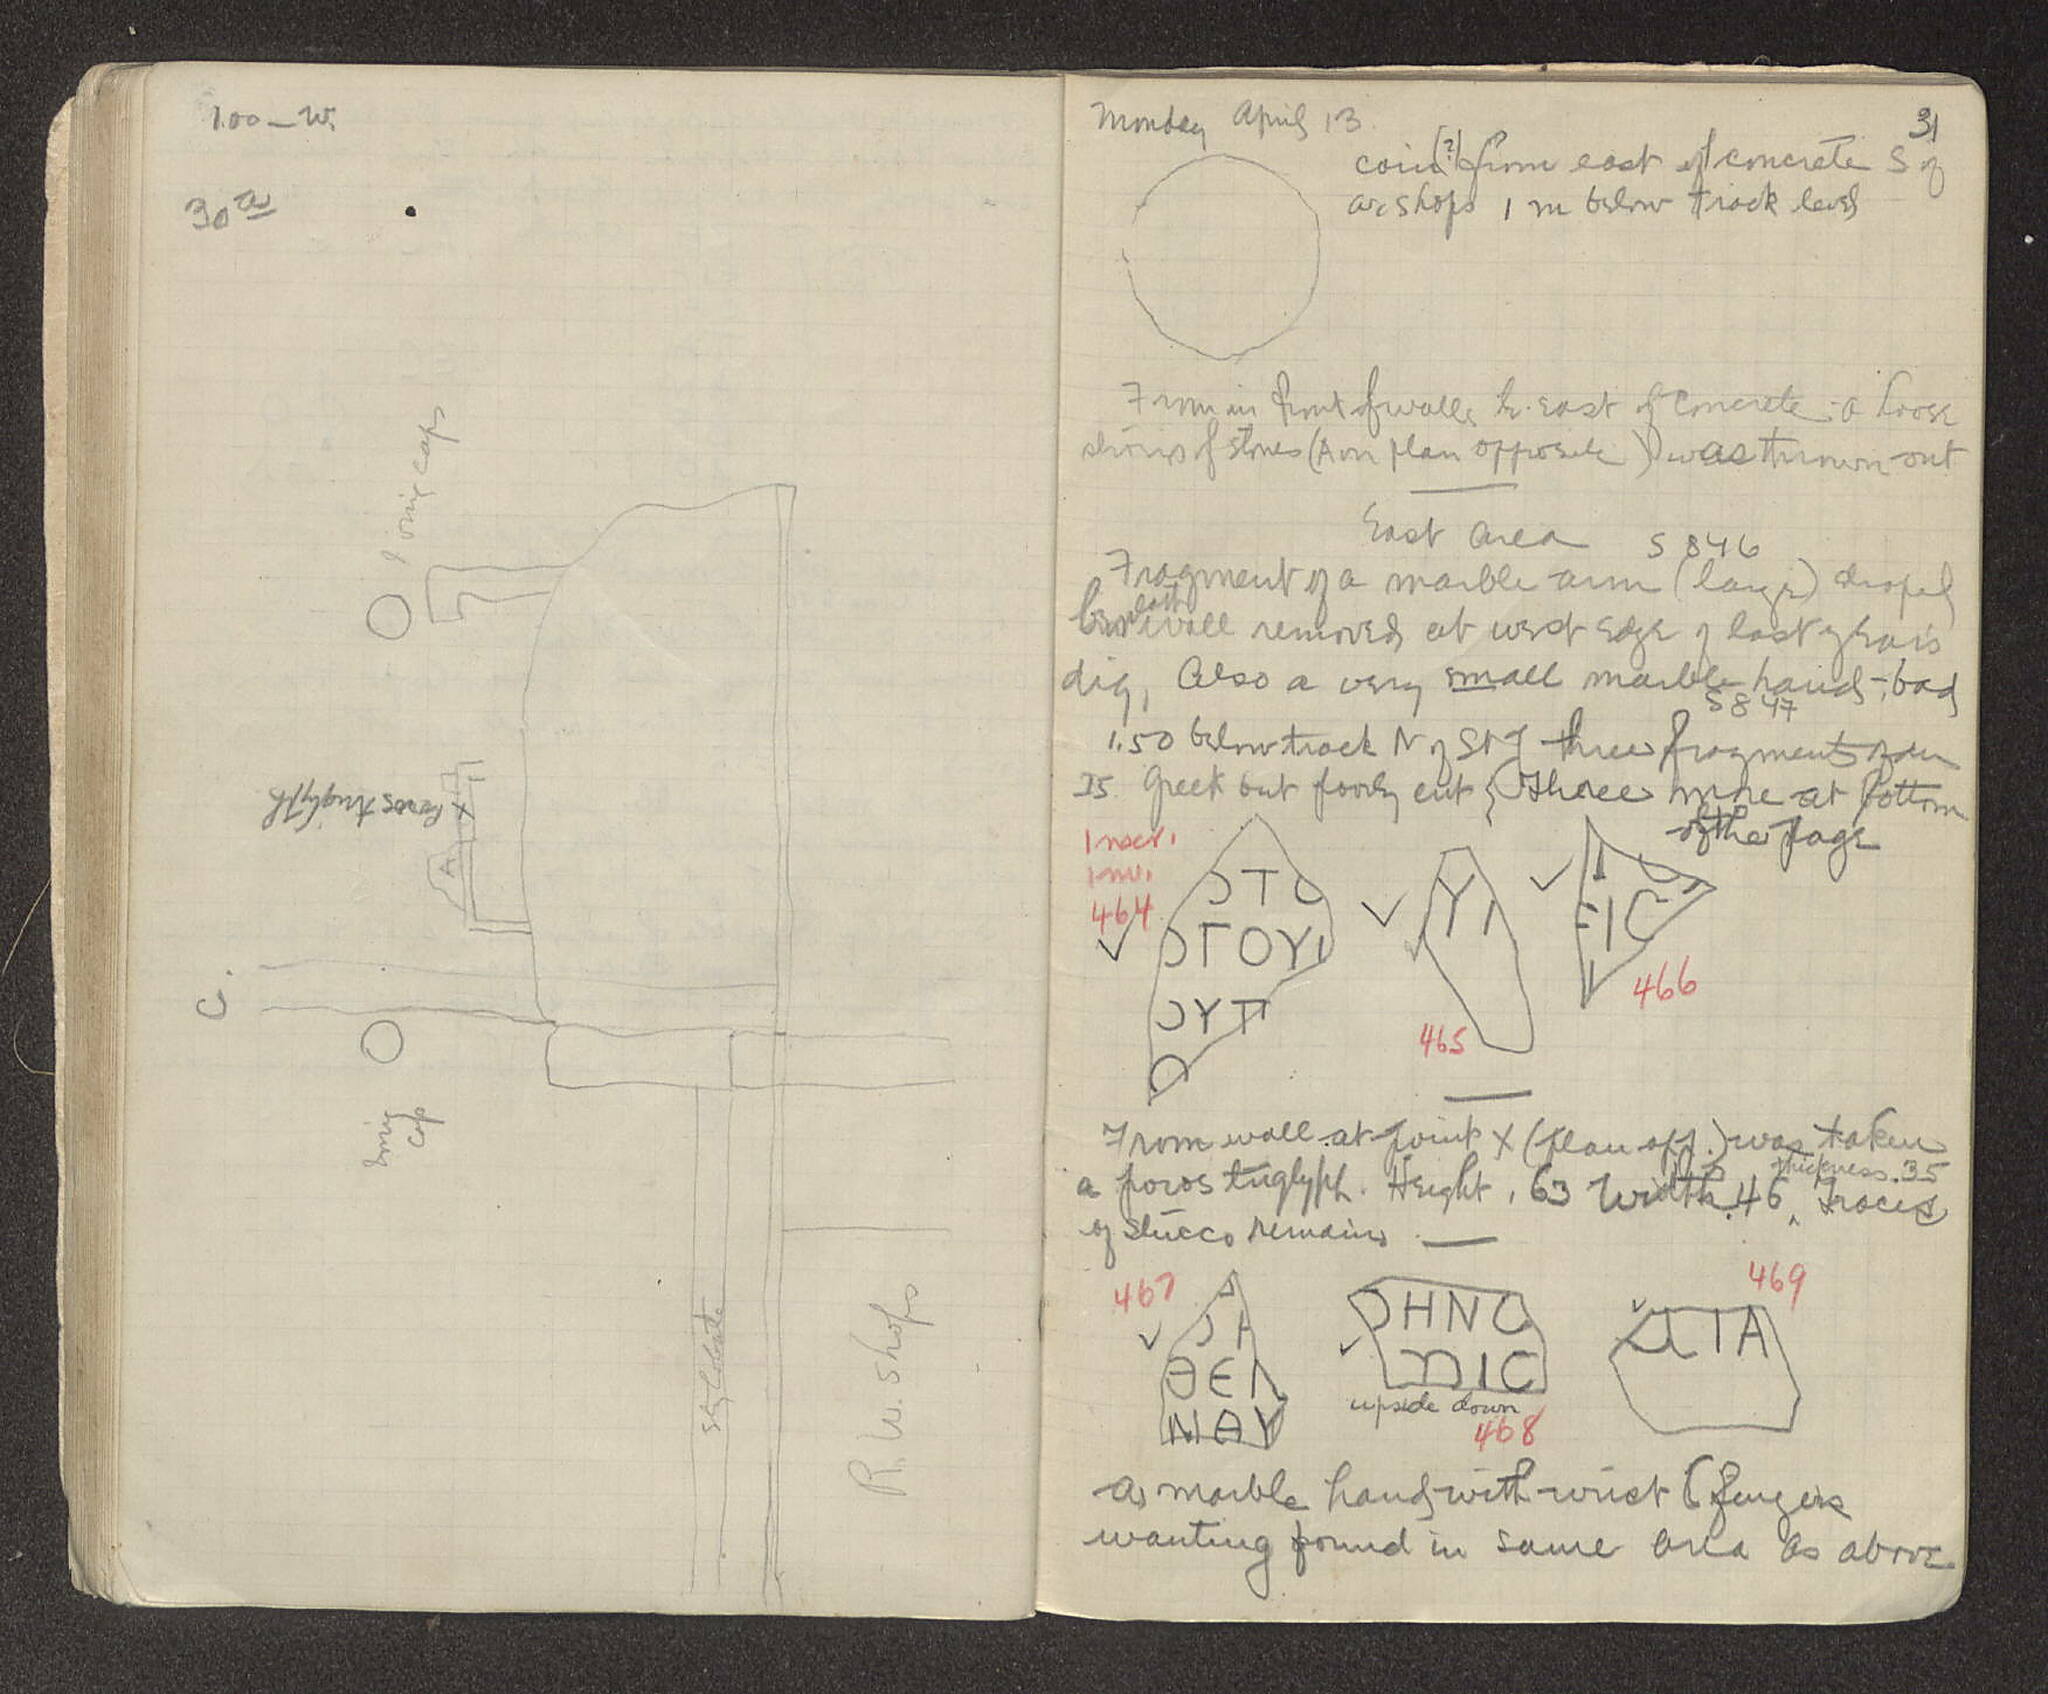 1.00 — W.
30 a
ionic caps
poros triglyph
X
A
C.
ionic
cap
stylobate
R. W. shops
Monday April 13
31
coin (?) from east of concrete S of
shops 1 m below track level
From in front of wall, east of concrete - a loose
of stones (A on plan opposite) was thrown out
East area
S 846
Fragment of a marble arm (large)
wall removed at west edge of last year's
dig, Also a very small marble hand - bad
S 847
1.50 below track N of St J three fragments of an
IS Greek but poorly cut { three more at bottom
of the page
Inscr.
inv.
464
ϽΤϹ
ϽΓΟΥΙ
ϽΥΠ
Ο
ΥΙ
465
Ι
ΕΙϹ
466
From wall at point X (plan opp.) was taken
a poros triglyph. Height .63 Width .46 thickness .35 Traces
of stucco remains
467
ϽΗ
ΘΕΛ
ΝΑΥ
ϽΗΝϹ
ΙϹ
upside down
468
ΙΑ
469
A marble hand with wrist (fingers
wanting found in same area as above